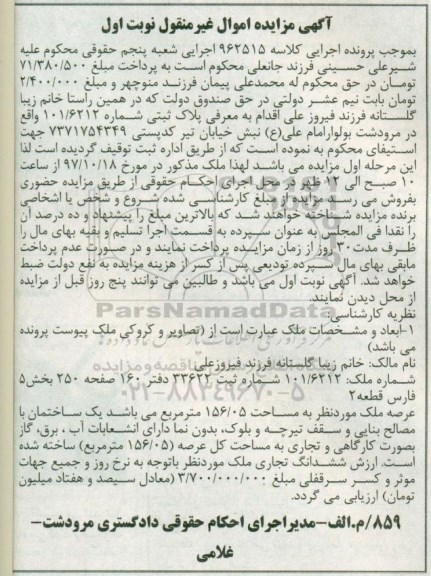 آگهی مزایده اموال غیرمنقول نوبت اول
بموجب پرونده اجرایی کلاسه ۹۶۲۵۱۵ اجرایی شعبه پنجم حقوقی محکوم علیه
شیرعلی حسینی فرزند جانعلی محکوم است به پرداخت مبلغ ۷۱/۳۸۰/۵۰۰
تومان در حق محکوم له محمدعلی پیمان فرزند منوچهر و مبلغ ۲/۴۰۰/۰۰۰
تومان بابت نیم عشر دولتی در حق صندوق دولت که در همین راستا خانم زیبا
گلستانه فرزند فیروز علی اقدام به معرفی پلاک ثبتی شماره ۱۰۱/۶۲۱۲ واقع
در مرودشت بولوارامام علی(ع) نبش خیابان تیر کدپستی ۷۳۷۱۷۵۴۳۴۹ جهت
استیفای محکوم به نموده است که از طریق اداره ثبت توقیف گردیده است لذا
این مرحله اول مزایده می باشد لهذا ملک مذکور در مورخ ۹۷/۱۰/۱۸ از ساعت
۱۰ صبح الی ۱۲ ظهر در محل اجرای احکام حقوقی از طریق مزایده حضوری
بفروش می رسد مزایده از مبلغ کارشناسی شده شروع و شخص یا اشخاصی
برنده مزایده شناخته خواهند شد که بالاترین مبلغ را پیشنهاد و ده درصد آن
را نقدا فی المجلس به عنوان سپرده به قسمت اجرا تسلیم و بقیه بهای مال را
ظرف مدت ۳۰ روز از زمان مزایده پرداخت نمایند و در صورت عدم پرداخت
مابقی بهای مال سپرده تودیعی پس از کسر از هزینه مزایده به نفع دولت ضبط
خواهد شد. آگهی نوبت اول می باشد و طالبین می توانند پنج روز قبل از مزایده
از محل دیدن نمایند.
ParsNamadData
نظریه کارشناسی
۱-ابعاد و مشخصات ملک عبارت است از (تصاویر و کروکی ملک پیوست پرونده
می باشد)
نام مالک: خانم زیبا گلستانه فرزند فیروزعلی
شماره ملک: ۱۰۱/۶۲۱۲ شماره ثبت ۳۳۶۲۲ دفتر ۱۶۰ صفحه ۲۵۰ بخش۵
فارس قطعه۲
۰۲۱-۸۸۳۴۹۶۷۰-۵
عرصه ملک موردنظر به مساحت ۱۵۶/۰۵ مترمربع می باشد یک ساختمان با
مصالح بنایی و سقف تیرچه و بلوک، بدون نما دارای انشعابات آب ، برق، گاز
بصورت کارگاهی و تجاری به مساحت کل عرصه (۱۵۶/۰۵ مترمربع) ساخته شده
است. ارزش ششدانگ تجاری ملک موردنظر باتوجه به نرخ روز و جمیع جهات
موثر و کسر سرقفلی مبلغ ۳/۷۰۰/۰۰۰/۰۰۰ (معادل سیصد و هفتاد میلیون
تومان) ارزیابی می گردد.
۸۵۹/م.الف-مدیراجرای احکام حقوقی دادگستری مرودشت-
غلامی